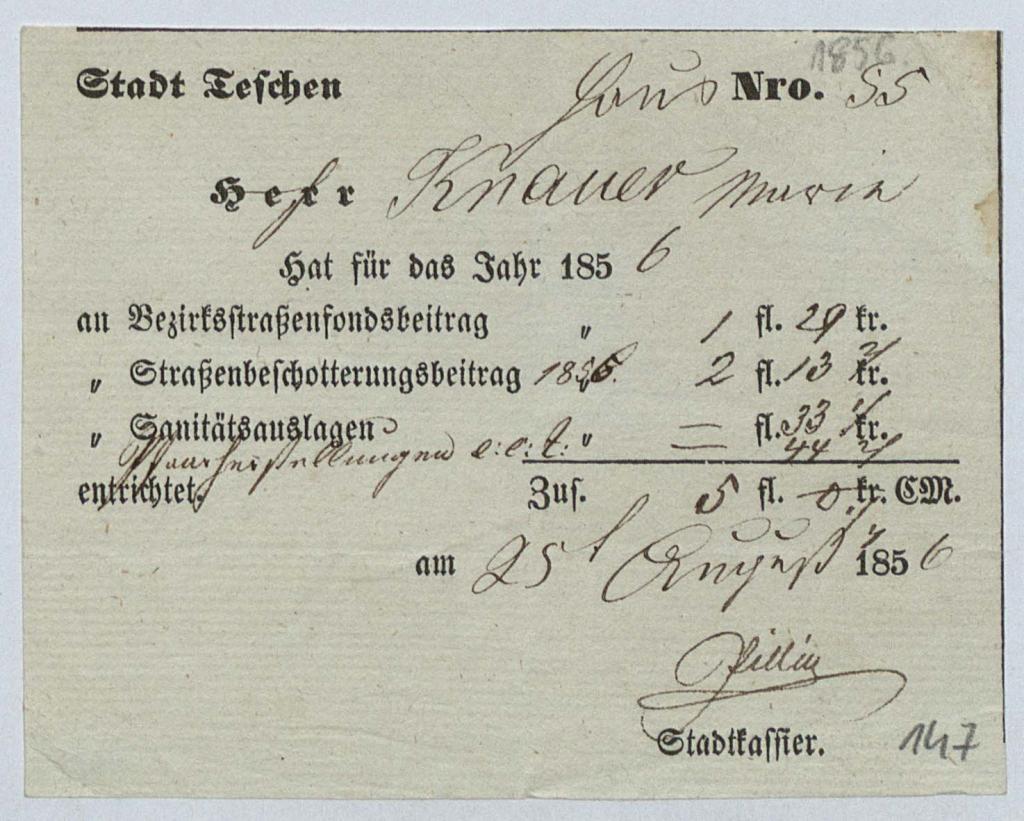 1856.
Stadt Teschen Haus Nro. 55
Herr Knauer Marie
Hat für das Jahr 1856
an Bezirksstraßenfondsbeitrag „ 1 fl. 29 kr.
„ Straßenbeschotterungsbeitrag 1856. 2 fl. 13 2/ kr.
„ Sanitätsauslagen „ = fl. 33 kr.
e: c: t: 44
entrichtet. Zus. 5 fl. kr. CM.
am 25t August 1856
Stadtkassier. 147